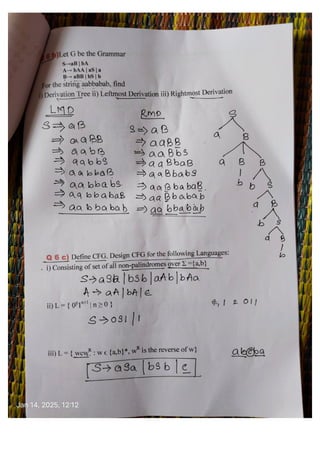 Let G be the Grammar
S→aB | bA
A→ bAA | aS | a
B→ aBB | bS | b
For the string aabbabab, find
i) Derivation Tree ii) Leftmost Derivation iii) Rightmost Derivation
LMD
S ⇒ aB
⇒ aaBB
⇒ aabB
⇒ aabbS
⇒ aabbaB
⇒ aabbabS
⇒ aabbabaB
⇒ aabbabab
RMD
S ⇒ aB
⇒ aaBB
⇒ aaBbS
⇒ aaBbaB
⇒ aaBbabS
⇒ aaBbabaB
⇒ aaBbabab
⇒ aabbabab
S
a B
a B B
b b S
a B
b S
a B
b
Q 6 c) Define CFG. Design CFG for the following Languages:
i) Consisting of set of all non-palindromes over Σ ={a,b}
S→ aSa | bSb | aAb | bAa
A→ aA | bA | ε
ii) L = { 0ⁿ1ⁿ⁺¹ | n ≥ 0 }
S→ 0S1 | 1
iii) L = { wcwᴿ : w ϵ {a,b}*, wᴿ is the reverse of w}
S→ aSa | bSb | c
Jan 14, 2025, 12:12